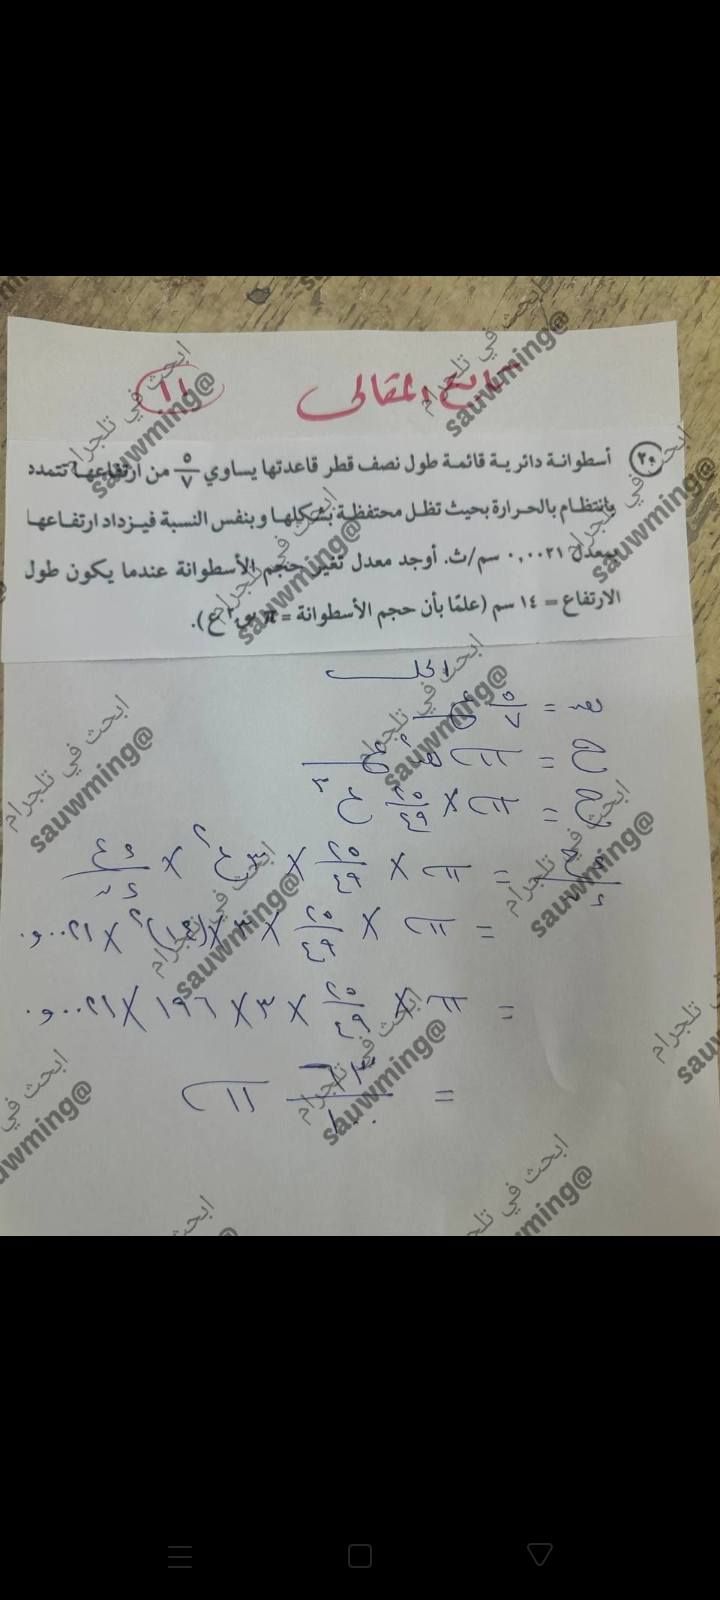 نماذج المقالى ١١
٢٠ أسطوانة دائرية قائمة طول نصف قطر قاعدتها يساوي ٥/٧ من ارتفاعها تتمدد
بانتظام بالحرارة بحيث تظل محتفظة بشكلها وبنفس النسبة فيزداد ارتفاعها
بمعدل ٠,٠٠٢١ سم/ث. أوجد معدل تغير حجم الأسطوانة عندما يكون طول
الارتفاع = ١٤ سم (علمًا بأن حجم الأسطوانة = π نق٢ ع).
الحل
نق = ٥/٧ ع
ح = π نق٢ ع
ح = π × ٢٥/٤٩ ع٣
ءح/ءن = π × ٢٥/٤٩ × ٣ ع٢ × ءع/ءن
= π × ٢٥/٤٩ × ٣ × (١٤)٢ × ٠,٠٠٢١
= π × ٢٥/٤٩ × ٣ × ١٩٦ × ٠,٠٠٢١
= ٦٣/١٠٠ π
ابحث في تلجرام
@sauwming